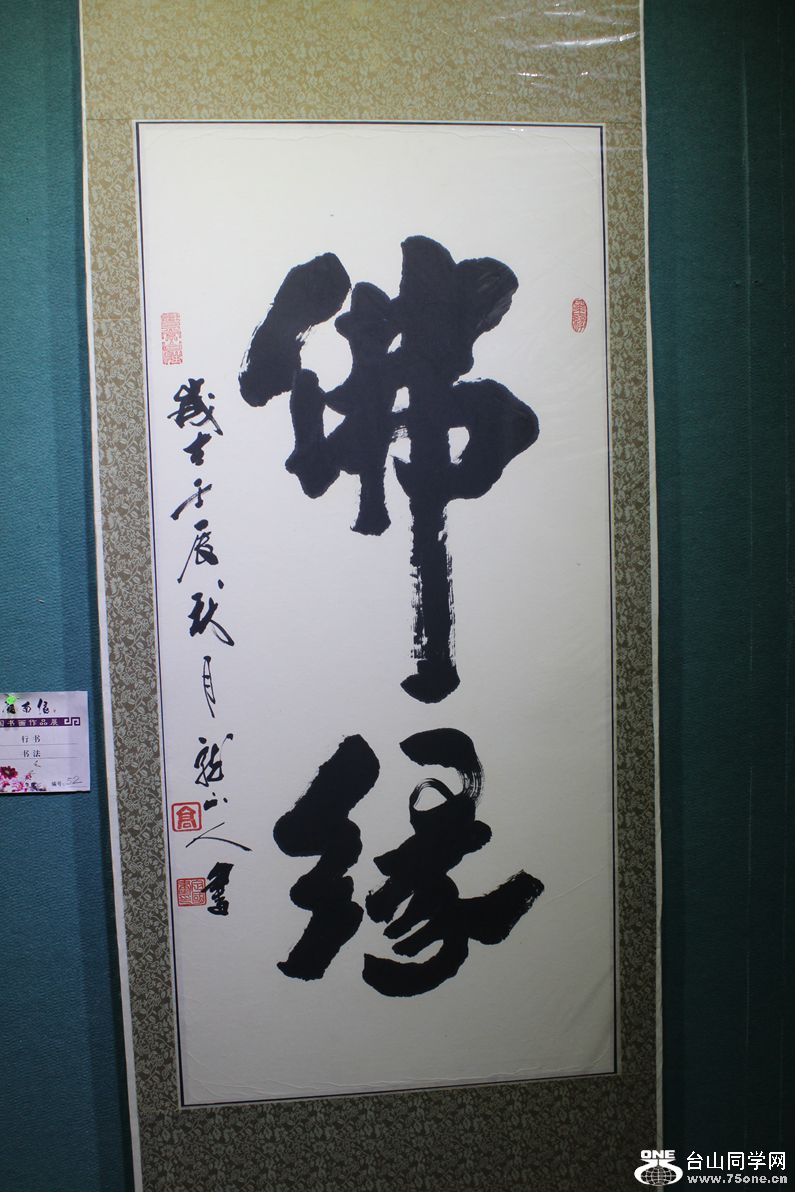 佛缘
岁在壬辰秋月龙山人书
国书画作品展
行书
书法
编号:52
ONE
台山同学网
www.75one.cn